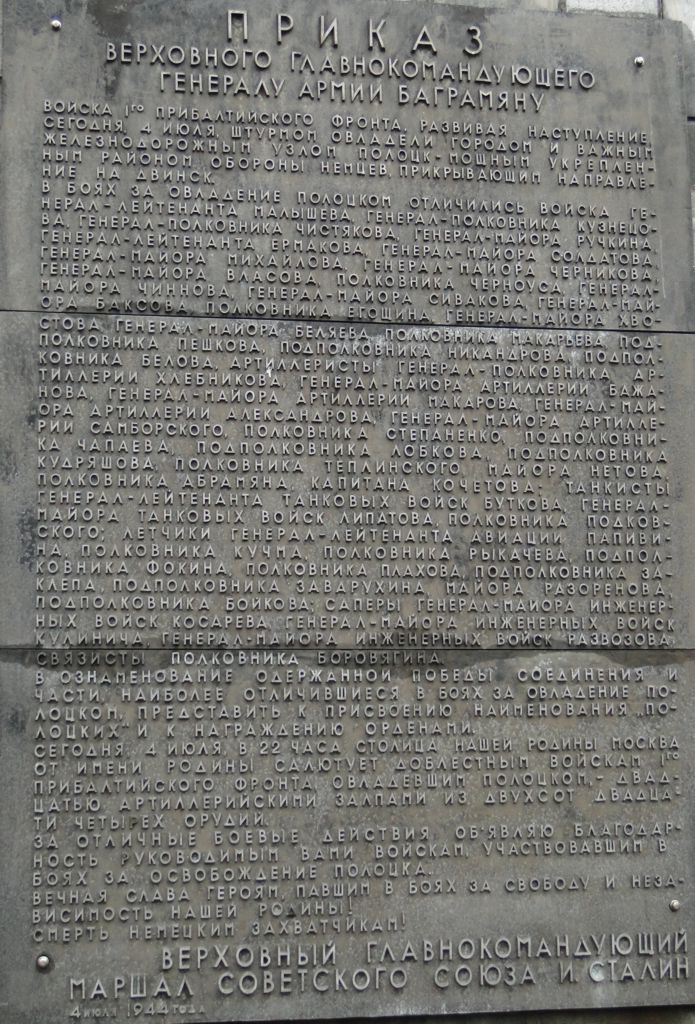 ПРИКАЗ
ВЕРХОВНОГО ГЛАВНОКОМАНДУЮЩЕГО
ГЕНЕРАЛУ АРМИИ БАГРАМЯНУ
ВОЙСКА 1ГО ПРИБАЛТИЙСКОГО ФРОНТА, РАЗВИВАЯ НАСТУПЛЕНИЕ
СЕГОДНЯ, 4 ИЮЛЯ, ШТУРМОМ ОВЛАДЕЛИ ГОРОДОМ И ВАЖНЫМ
ЖЕЛЕЗНОДОРОЖНЫМ УЗЛОМ ПОЛОЦК - МОЩНЫМ УКРЕПЛЕН-
НЫМ РАЙОНОМ ОБОРОНЫ НЕМЦЕВ, ПРИКРЫВАЮЩИМ НАПРАВЛЕ-
НИЕ НА ДВИНСК.
В БОЯХ ЗА ОВЛАДЕНИЕ ПОЛОЦКОМ ОТЛИЧИЛИСЬ ВОЙСКА ГЕ-
НЕРАЛ-ЛЕЙТЕНАНТА МАЛЫШЕВА, ГЕНЕРАЛ-ПОЛКОВНИКА КУЗНЕЦО-
ВА, ГЕНЕРАЛ-ПОЛКОВНИКА ЧИСТЯКОВА, ГЕНЕРАЛ-МАЙОРА РУЧКИНА,
ГЕНЕРАЛ-ЛЕЙТЕНАНТА ЕРМАКОВА, ГЕНЕРАЛ-МАЙОРА СОЛДАТОВА,
ГЕНЕРАЛ-МАЙОРА МИХАЙЛОВА, ГЕНЕРАЛ-МАЙОРА ЧЕРНИКОВА,
ГЕНЕРАЛ-МАЙОРА ВЛАСОВА, ПОЛКОВНИКА ЧЕРНОУСА, ГЕНЕРАЛ-
МАЙОРА ЧИННОВА, ГЕНЕРАЛ-МАЙОРА СИВАКОВА, ГЕНЕРАЛ-МАЙ-
ОРА БАКСОВА, ПОЛКОВНИКА ЕГОШИНА, ГЕНЕРАЛ-МАЙОРА ХВО-
СТОВА, ГЕНЕРАЛ-МАЙОРА БЕЛЯЕВА, ПОЛКОВНИКА МАКАРЬЕВА, ПОД-
ПОЛКОВНИКА ПЕШКОВА, ПОДПОЛКОВНИКА НИКАНДРОВА, ПОДПОЛ-
КОВНИКА БЕЛОВА, АРТИЛЛЕРИСТЫ ГЕНЕРАЛ-ПОЛКОВНИКА АР-
ТИЛЛЕРИИ ХЛЕБНИКОВА, ГЕНЕРАЛ-МАЙОРА АРТИЛЛЕРИИ БАЖА-
НОВА, ГЕНЕРАЛ-МАЙОРА АРТИЛЛЕРИИ МАКАРОВА, ГЕНЕРАЛ-МАЙ-
ОРА АРТИЛЛЕРИИ АЛЕКСАНДРОВА, ГЕНЕРАЛ-МАЙОРА АРТИЛЛЕ-
РИИ САМБОРСКОГО, ПОЛКОВНИКА СТЕПАНЕНКО, ПОДПОЛКОВНИ-
КА ЧАПАЕВА, ПОДПОЛКОВНИКА ЛОБКОВА, ПОДПОЛКОВНИКА
КУДРЯШОВА, ПОЛКОВНИКА ТЕПЛИНСКОГО, МАЙОРА НЕТОВА,
ПОЛКОВНИКА АБРАМЯНА, КАПИТАНА КОЧЕТОВА; ТАНКИСТЫ
ГЕНЕРАЛ-ЛЕЙТЕНАНТА ТАНКОВЫХ ВОЙСК БУТКОВА, ГЕНЕРАЛ-
МАЙОРА ТАНКОВЫХ ВОЙСК ЛИПАТОВА, ПОЛКОВНИКА ПОДКОВ-
СКОГО; ЛЕТЧИКИ ГЕНЕРАЛ-ЛЕЙТЕНАНТА АВИАЦИИ ПАПИВИ-
НА, ПОЛКОВНИКА КУЧМА, ПОЛКОВНИКА РЫКАЧЕВА, ПОДПОЛ-
КОВНИКА ФОКИНА, ПОЛКОВНИКА ПЛАХОВА, ПОДПОЛКОВНИКА ЗА-
КЛЕПА, ПОДПОЛКОВНИКА ЗАВАРУХИНА, МАЙОРА РАЗОРЕНОВА,
ПОДПОЛКОВНИКА БОЙКОВА; САПЕРЫ ГЕНЕРАЛ-МАЙОРА ИНЖЕНЕР-
НЫХ ВОЙСК КОСАРЕВА, ГЕНЕРАЛ-МАЙОРА ИНЖЕНЕРНЫХ ВОЙСК
КУЛИНИЧА, ГЕНЕРАЛ-МАЙОРА ИНЖЕНЕРНЫХ ВОЙСК РАЗВОЗОВА;
СВЯЗИСТЫ ПОЛКОВНИКА БОРОВЯГИНА.
В ОЗНАМЕНОВАНИЕ ОДЕРЖАННОЙ ПОБЕДЫ СОЕДИНЕНИЯ И
ЧАСТИ, НАИБОЛЕЕ ОТЛИЧИВШИЕСЯ В БОЯХ ЗА ОВЛАДЕНИЕ ПО-
ЛОЦКОМ, ПРЕДСТАВИТЬ К ПРИСВОЕНИЮ НАИМЕНОВАНИЯ „ПО-
ЛОЦКИХ" И К НАГРАЖДЕНИЮ ОРДЕНАМИ.
СЕГОДНЯ, 4 ИЮЛЯ, В 22 ЧАСА СТОЛИЦА НАШЕЙ РОДИНЫ МОСКВА
ОТ ИМЕНИ РОДИНЫ САЛЮТУЕТ ДОБЛЕСТНЫМ ВОЙСКАМ 1ГО
ПРИБАЛТИЙСКОГО ФРОНТА, ОВЛАДЕВШИМ ПОЛОЦКОМ, - ДВАД-
ЦАТЬЮ АРТИЛЛЕРИЙСКИМИ ЗАЛПАМИ ИЗ ДВУХСОТ ДВАДЦА-
ТИ ЧЕТЫРЕХ ОРУДИЙ.
ЗА ОТЛИЧНЫЕ БОЕВЫЕ ДЕЙСТВИЯ ОБ'ЯВЛЯЮ БЛАГОДАР-
НОСТЬ РУКОВОДИМЫМ ВАМИ ВОЙСКАМ, УЧАСТВОВАВШИМ В
БОЯХ ЗА ОСВОБОЖДЕНИЕ ПОЛОЦКА.
ВЕЧНАЯ СЛАВА ГЕРОЯМ, ПАВШИМ В БОЯХ ЗА СВОБОДУ И НЕЗА-
ВИСИМОСТЬ НАШЕЙ РОДИНЫ!
СМЕРТЬ НЕМЕЦКИМ ЗАХВАТЧИКАМ!
ВЕРХОВНЫЙ ГЛАВНОКОМАНДУЮЩИЙ
МАРШАЛ СОВЕТСКОГО СОЮЗА И. СТАЛИН
4 ИЮЛЯ 1944 ГОДА